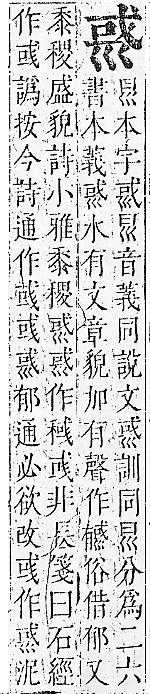 本字 音義同說文 訓同 分爲二六
書本義 水有文章貌加有聲作 俗借郁又
黍稷盛貌詩小雅黍稷 作稢彧非長箋曰石經
作彧譌按今詩通作彧彧 郁通必欲改彧作 泥